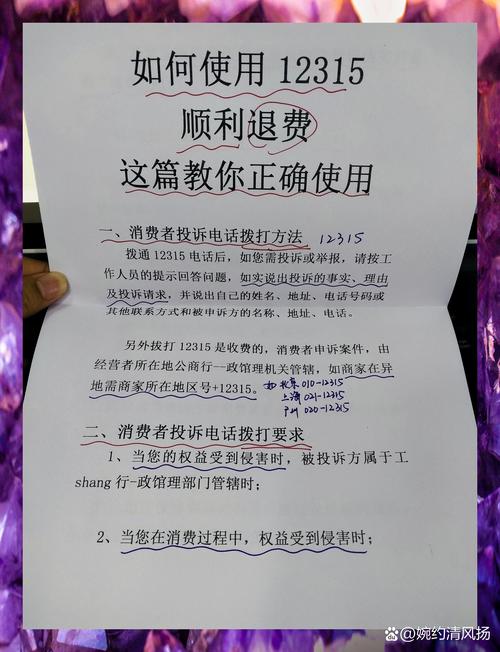 如何使用12315
顺利退费
这篇教你正确使用
一、消费者投诉电话拨打方法 12315
拨通12315电话后，如您需投诉或举报，请按工
作人员的提示回答问题，如实说出投诉的事实、理由
及投诉请求，并说出自己的姓名、地址、电话号码或
其他联系方式和被申诉方的名称、地址、电话。
另外拨打12315是收费的，消费者申诉案件，由
经营者所在地公商行-政馆理机关管辖，如商家在异
地需商家所在地区号+12315。
如北京010-12315
上海021-12315
广州020-12315
二、消费者投诉电话拨打要求
1、当您的权益受到侵害时，被投诉方属于工
shang行-政馆理部门管辖时；
2、当您在消费过程中，权益受到侵害时；
婉约清风扬